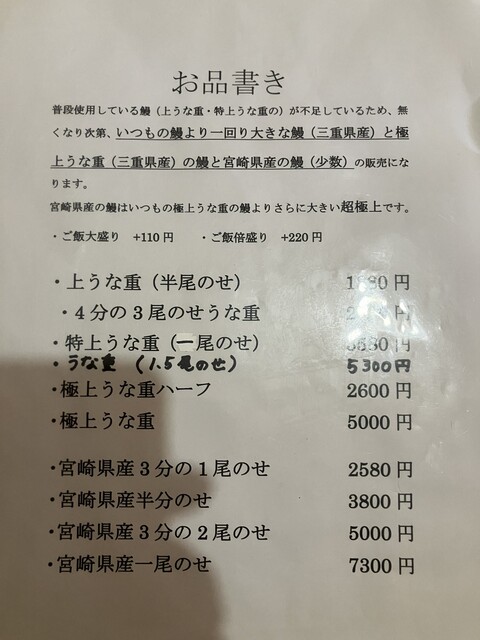 お品書き
普段使用している鰻（上うな重・特上うな重の）が不足しているため、無
くなり次第、いつもの鰻より一回り大きな鰻（三重県産）と極
上うな重（三重県産）の鰻と宮崎県産の鰻（少数）の販売にな
ります。
宮崎県産の鰻はいつもの極上うな重の鰻よりさらに大きい超極上です。
・ご飯大盛り +110円 ・ご飯倍盛り +220円
・上うな重（半尾のせ） 円
・4分の3尾のせうな重 円
・特上うな重（一尾のせ） 円
・うな重 （1.5尾のせ） 5300円
・極上うな重ハーフ 2600円
・極上うな重 5000円
・宮崎県産3分の1尾のせ 2580円
・宮崎県産半分のせ 3800円
・宮崎県産3分の2尾のせ 5000円
・宮崎県産一尾のせ 7300円